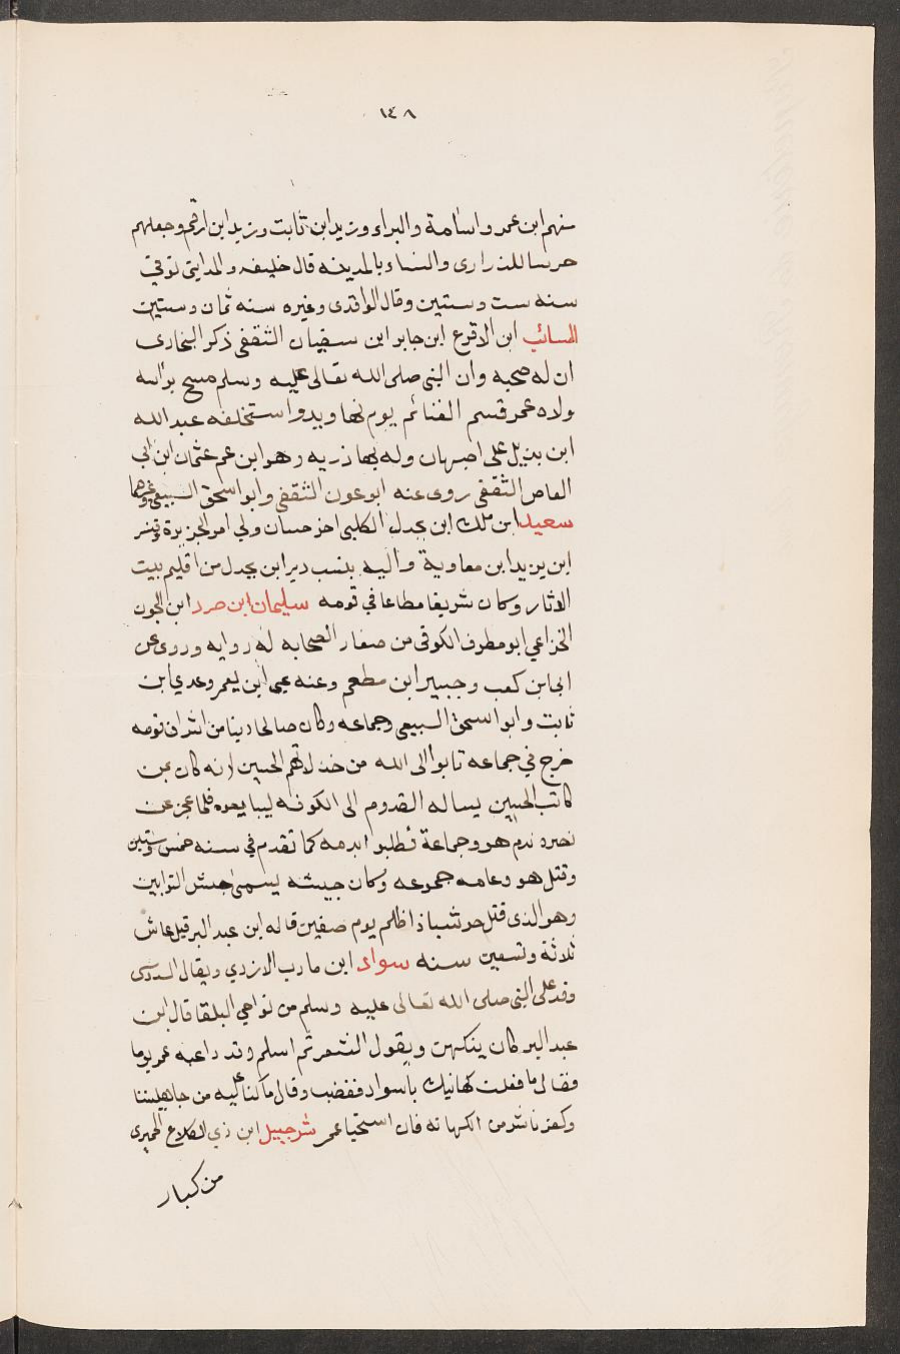 ١٤٨
منهم ابن عمر واسامة والبراء وزيد ابن ثابت وزيد ابن ارقم وجعلهم
حرسا للذرارى والنساء بالمدينه قال خليفه والمداينى توفي
سنه ست وستين وقال الواقدى وغيره سنه ثمان وستين
السائب ابن الاقرع ابن جابر ابن سفيان الثقفى ذكر البخارى
ان له صحبه وان النبى صلى الله تعالى عليه وسلم مسح براسه
ولاه عمر قسم الغنائم يوم نهاوند واستخلفه عبد الله
ابن بديل على اصبهان وله بها ذريه وهو ابن عم عثمان ابن ابى
العاص الثقفى روى عنه ابو عون الثقفى وابو اسحق السبيعى وغيرهما
سعيد ابن ملك ابن بحدل الكلبى اخو حسان ولى امر الجزيرة وقنسر
ابن يزيد ابن معاوية واليه ينسب دير ابن بحدل من اقليم بيت
الاثار وكان شريفا مطاعا في قومه سليمان ابن صرد ابن الجون
الخزاعي ابو مطرف الكوفى من صغار الصحابه له روايه وروى عن
ابى ابن كعب وجبير ابن مطعم وعنه يحى ابن يعمر وعدي ابن
ثابت وابو اسحق السبيعى وجماعه وكان صالحا دينا من اشراف قومه
خرج في جماعه تابوا الى الله من خذلانهم الحسين لانه كان ممن
كاتب الحسين يساله القدوم الى الكوفه ليبايعوه فلما عجز عن
نصره ندم هو وجماعة فطلبوا بدمه كما تقدم في سنه خمس وستين
وقتل هو وعامه جموعه وكان جيشه يسمى جيش التوابين
وهو الذى قتل حوشبا ذا ظلم يوم صفين قاله ابن عبد البر قيل عاش
ثلاثة وتسعين سنه سواد ابن مارب الازدي ويقال السدوسى
وفد على النبى صلى الله تعالى عليه وسلم من نواحي البلقا قال ابن
عبد البر كان يتكهن ويقول الشعر ثم اسلم وقد داعبه عمر يوما
فقال ما فعلت كهانتك يا سواد فغضب وقال ما كنا عليه من جاهليتنا
وكفرنا شر من الكهانه فان استحيا عمر شرحبيل ابن ذي الكلاع الحميرى
من كبار